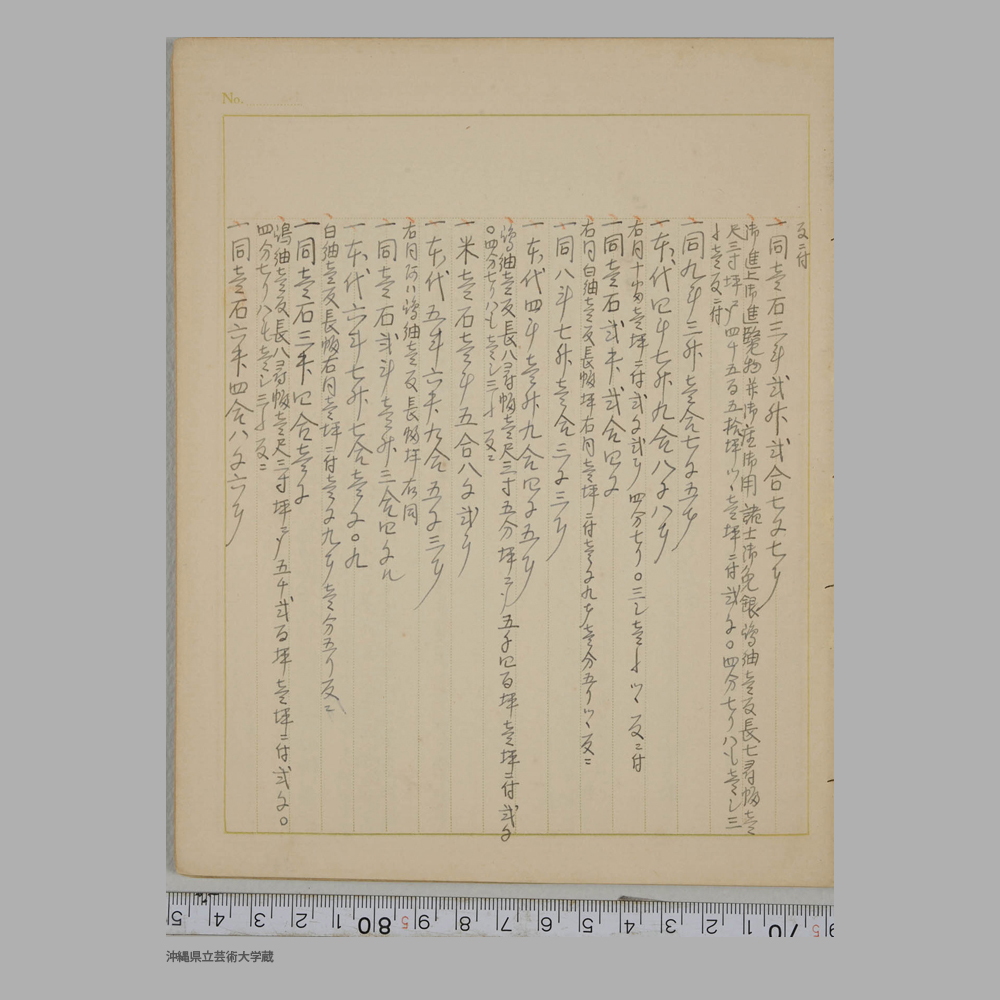 No.
反ニ付
一同壱石三斗弐升弐合七夕七才
御進上御進覧物并御座御用諸士御免銀嶋紬壱反長七尋幅壱
尺三寸坪〆四千五百五拾坪ツヽ壱坪ニ付弐夕〇四分七り八毛壱シ三
壱反ニ付
一同九斗三升壱合七夕五才
一本代四斗七升九合八夕八才
右同十尋壱坪ニ付弐夕弐才四分七り〇三シ壱ツヽ反ニ付
一同壱石弐升弐合四夕
右同白紬壱反長幅坪右同壱坪ニ付壱夕九才壱分五りツヽ反ニ
一同八斗七升壱合三夕三才
一本代四斗壱升九合四夕五才
嶋紬壱反長八尋幅壱尺三寸五分坪〆五千四百坪壱坪ニ付弐夕
〇四分七り八毛壱シ三 反ニ
一米壱石壱斗五合八夕弐才
一本代五斗六升九合五夕三才
右同所ハ嶋紬壱反長幅坪右同
一同壱石弐斗壱升三合四夕九
一本代六斗七升七合壱夕〇九
白紬壱反長幅右同壱坪ニ付壱夕九才壱分五り反ニ
一同壱石三升四合壱夕
嶋紬壱反長八尋幅壱尺三寸坪〆五千弐百坪壱坪ニ付弐夕〇
四分七り八毛壱シ三 反ニ
一同壱石六升四合八夕六才
5 4 3 2 1 80 5 9 8 7 6 5 4 3 2 1 70 5 9
沖縄県立芸術大学蔵